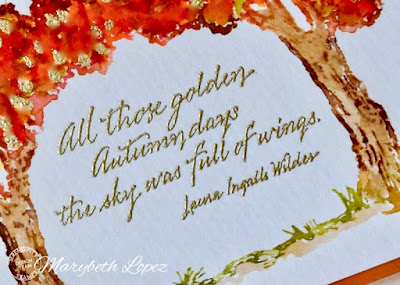 All those golden
Autumn days
the sky was full of wings.
Laura Ingalls Wilder
Marybeth Lopez